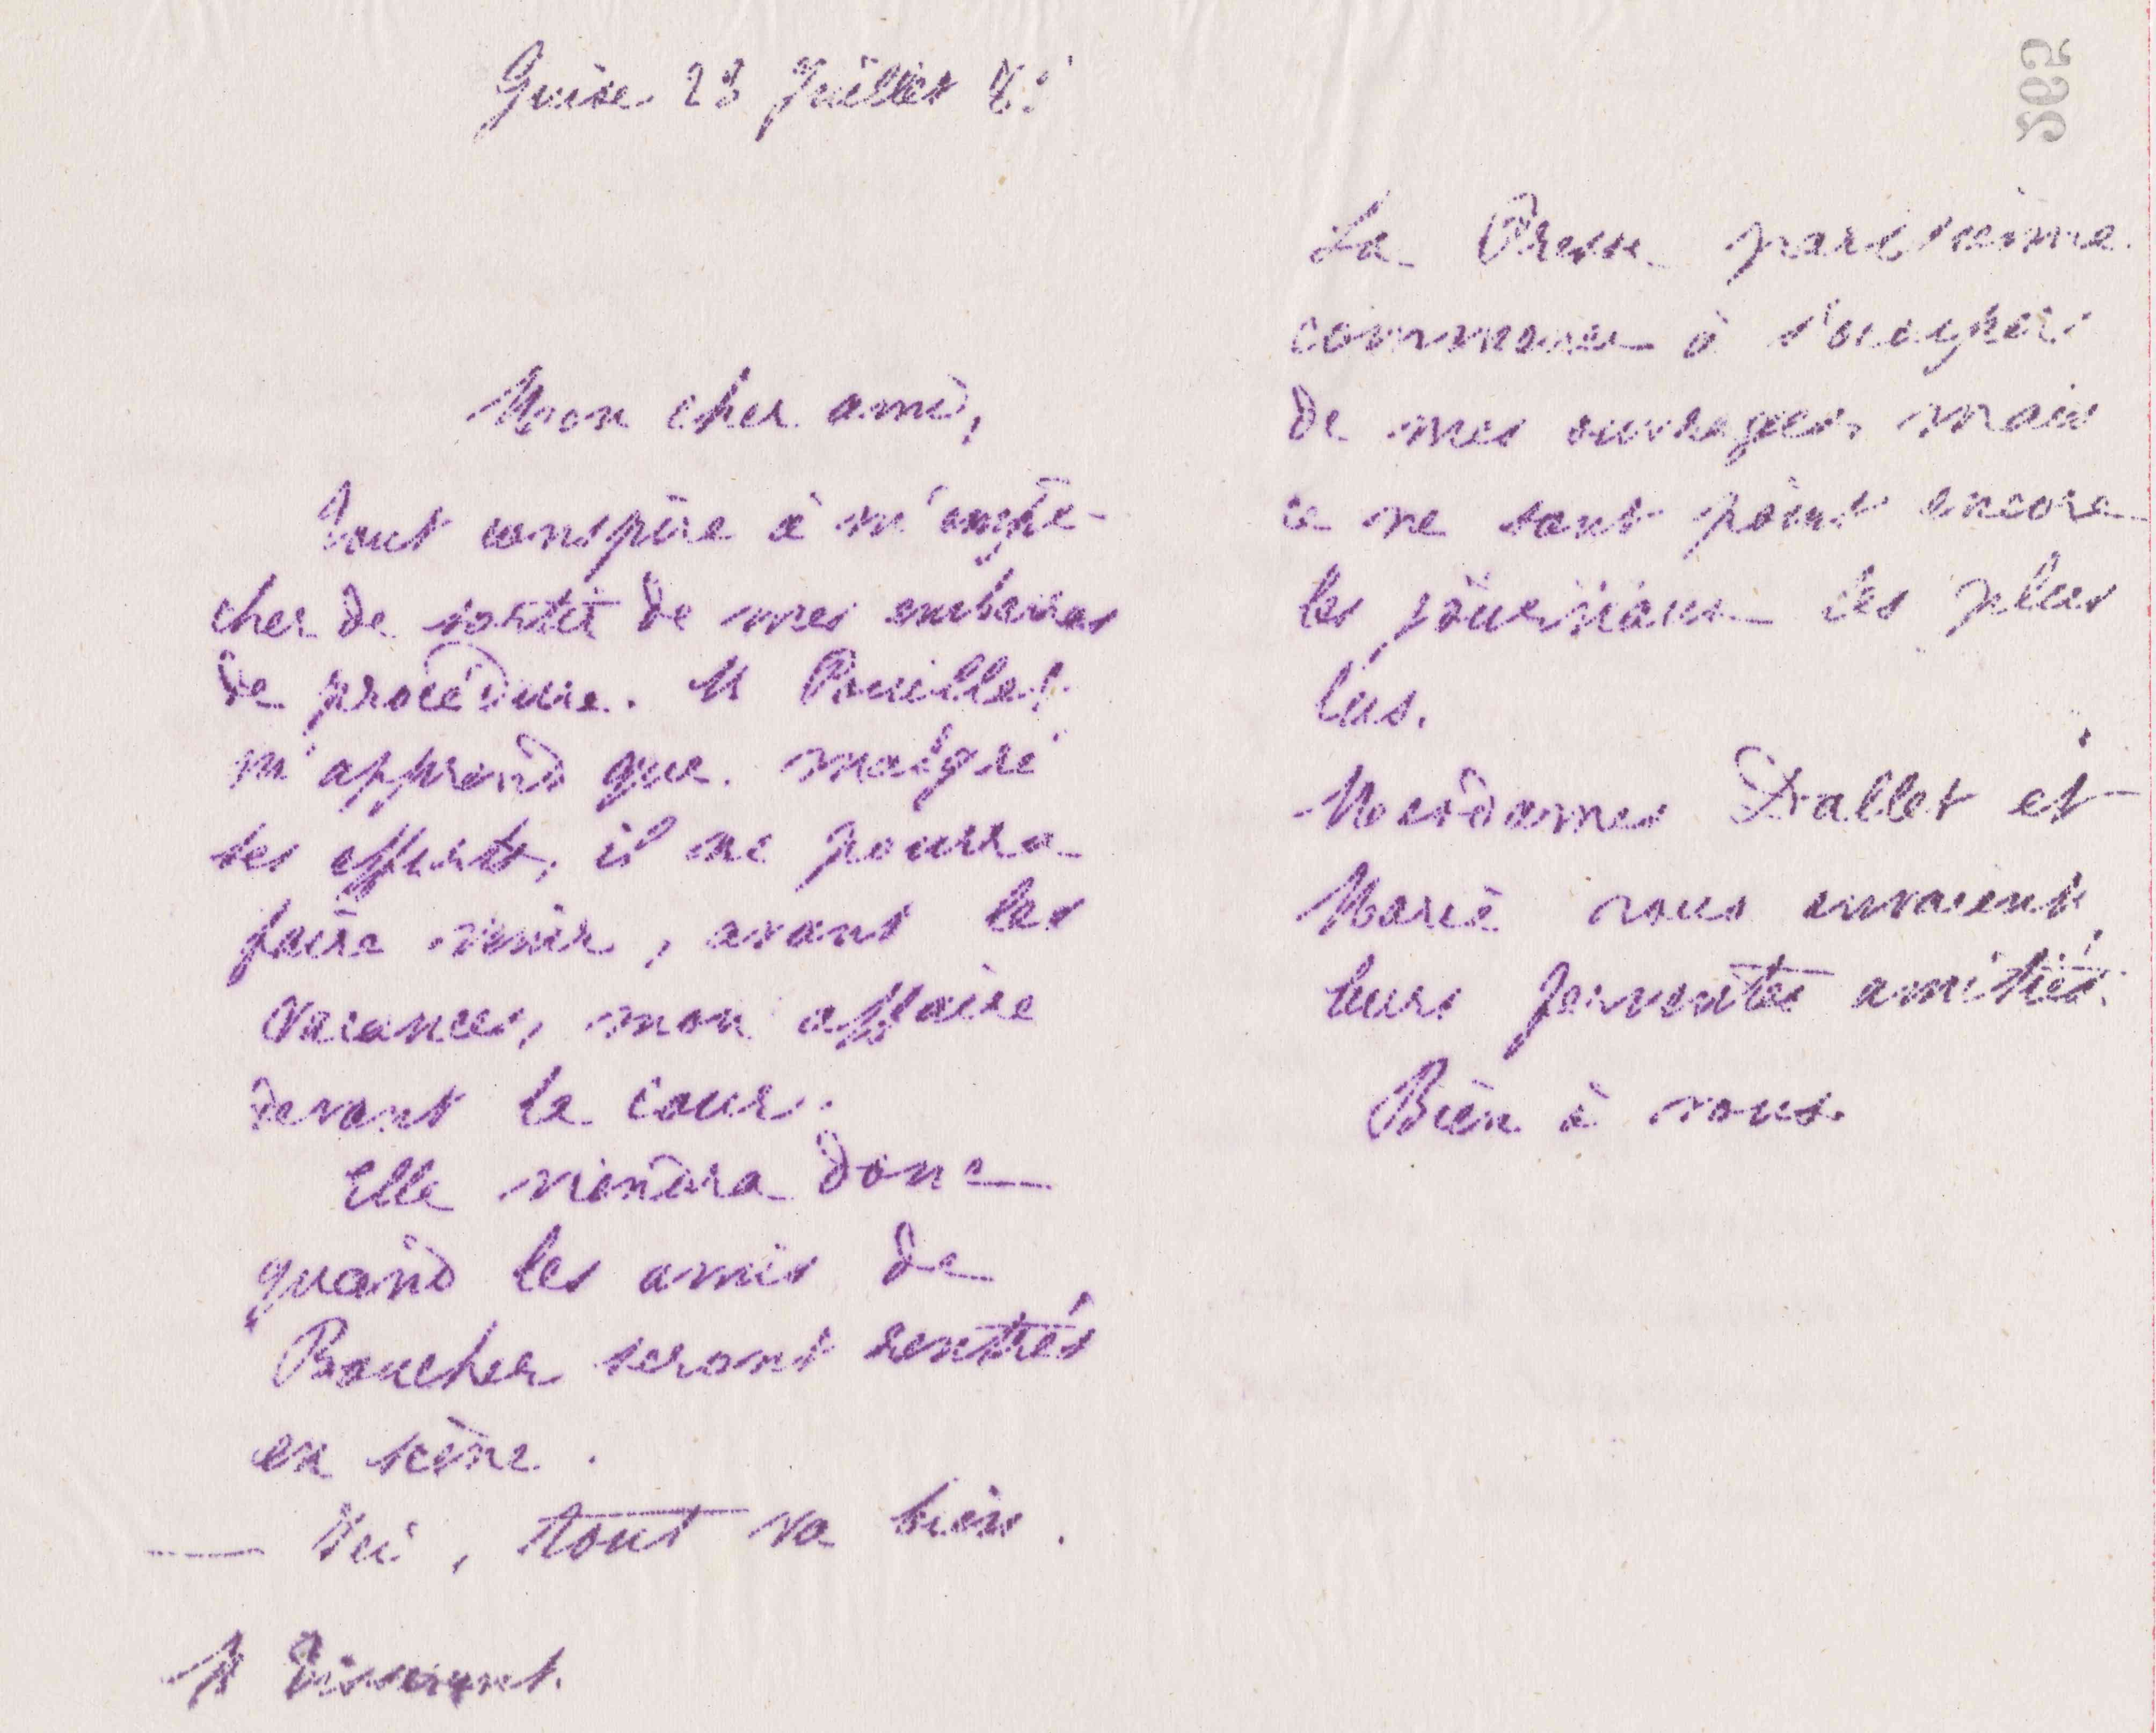 Guise 23 Juillet 83
Mon cher ami,
Tout conspire à m'empê-
cher de sortir de mes embarras
de procédure. M Pouillet
m'apprend que malgré
ses efforts, il ne pourra
faire venir, avant les
vacances, mon affaire
devant la cour.
Elle viendra donc
quand les amis de
Boucher seront rentrés
en scène.
— Ici, tout va bien.
M Tisserant.
265
La Presse parisienne
commence à s'occuper
de mes ouvrages, mais
ce ne sont point encore
les journaux les plus
lus.
Mesdames Dallet et
Marie vous envoient
leurs ferventes amitiés.
Bien à vous.